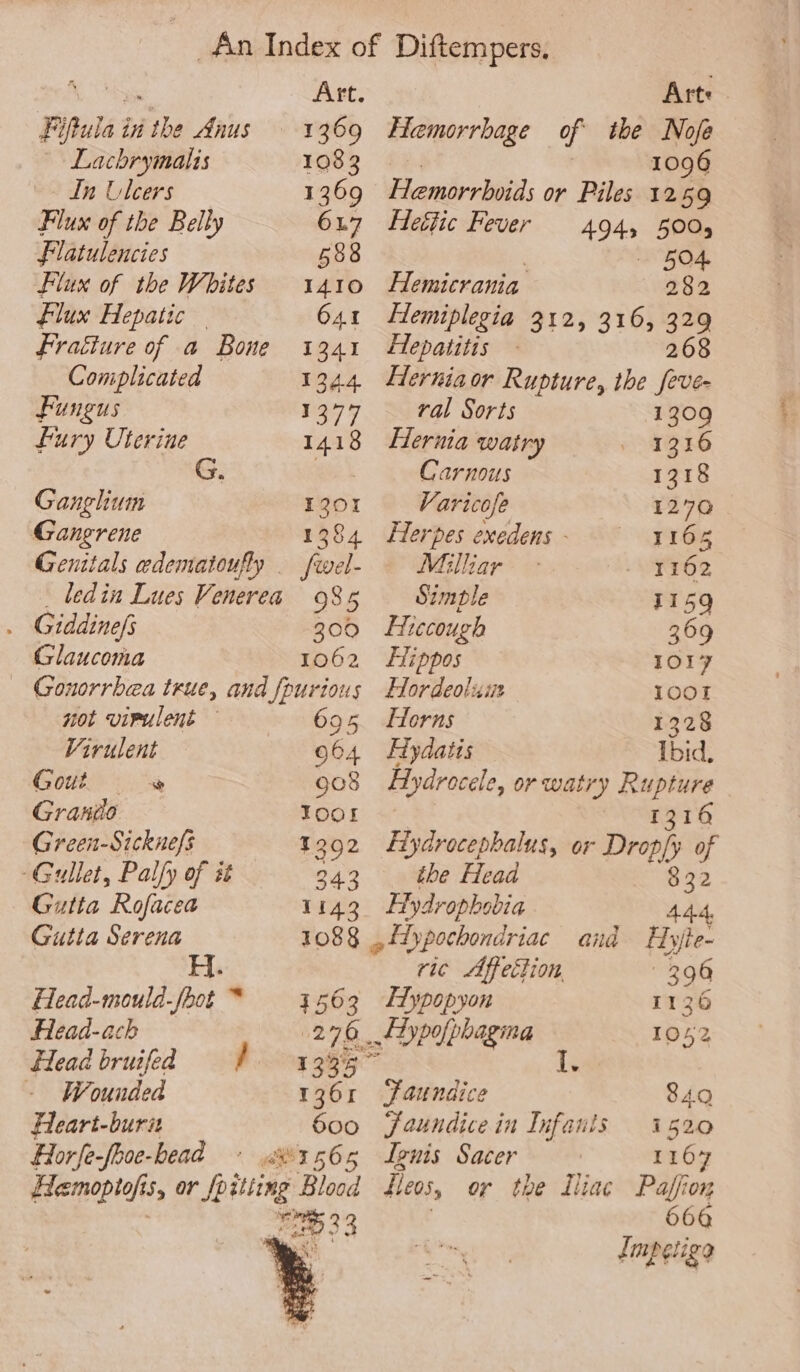 An Index of Diſtempers.
Art.
Fiſtula in the Anus 1369
Lachrymalis 1083
In Ulcers 1369
Flux of the Belly 617
Flatulencies 588
Flux of the Whites 1410
Flux Hepatic 641
Fracture of a Bone 1341
Complicated 1344
Fungus 1377
Fury Uterine 1418
G.
Ganglium 1301
Gangrene 1384
Genitals œdematouſly ſwel-
led in Lues Venerea 985
Giddineſs 300
Glaucoma 1062
Gonorrhœa true, and ſpurious
not virulent 695
Virulent 964
Gout 908
Grando 1001
Green-Sickneſs 1392
Gullet, Palſy of it 343
Gutta Roſacea 1143
Gutta Serena 1088
H.
Head-mould-ſhot 1563
Head-ach 276
Head bruiſed 1335
Wounded 1361
Heart-burn 600
Horſe-ſhoe-head 1565
Hæmoptoſis, or ſpitting Blood
533
Art.
Hæmorrhage of the Noſe
1096
Hæmorrhoids or Piles 1259
Hectic Fever 494, 500,
504
Hemicrania 282
Hemiplegia 312, 316, 329
Hepatitis 268
Hernia or Rupture, the ſeve-
ral Sorts 1309
Hernia watry 1316
Carnous 1318
Varicoſe 1270
Herpes exedens 1165
Milliar 1162
Simple 1159
Hiccough 369
Hippos 1017
Hordeolum 1001
Horns 1328
Hydatis Ibid.
Hydrocele, or watry Rupture
1316
Hydrocephalus, or Dropſy of
the Head 832
Hydrophobia 444
Hypochondriac and Hyſte-
ric Affection 396
Hypopyon 1136
Hypoſphagma 1052
I.
Jaundice 849
Jaundice in Infants 1520
Ignis Sacer 1167
Ileos, or the Iliac Paſſion
666
Impetigo